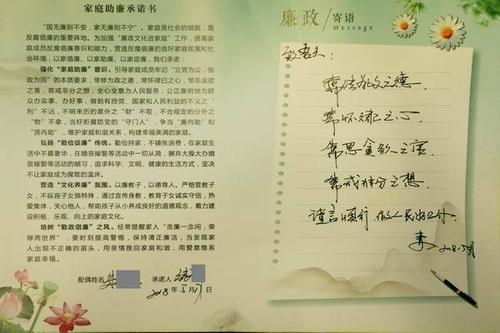 家庭助廉承诺书
"国无廉则不安，家无廉则不宁"。家庭是社会的细胞，是
反腐倡廉的重要阵地。为加强"廉政文化进家庭"工作，提高家
庭成员反腐倡廉意识和能力，营造反腐倡廉的良好家庭氛围和社
会环境，以家倡廉、以家助廉、以家促廉，我们承诺：
强化"家庭助廉"意识。引导家庭成员牢记"立党为公，执
政为民"的本质要求，常修为政之德，常怀律己之心，常思贪欲
之害，常戒非分之想，全心全意为人民服务，公正廉明地为群
众办实事、办好事，做到有损党、国家和人民利益的不义之"利"
不沾，不明来历的意外之"财"不取，不合规定的分外之
"物"不拿，当好拒腐防变的"守门人"，争当"廉内助"和
"贤内助"，维护家庭和谐关系，构建幸福美满的家庭。
弘扬"勤俭促廉"传统。勤俭持家，不铺张浪费，在家庭生
活中不慕奢华，在婚丧嫁娶等活动中一切从简，摒弃大操大办婚
丧嫁娶等活动的陋习，追求科学、文明、健康的生活方式，坚决
不让家庭成为腐败的温床。
营造"文化养廉"氛围。以廉教子，以德育人。严格管教子
女，不纵容子女搞特殊，通过言传身教，教育子女诚实守信，热
爱集体，关心他人，帮助孩子从小养成良好的道德观念，着力建
设积极、乐观、向上的家庭文化。
培树"勤政倡廉"之风。经常提醒家人"贪廉一念间，荣
辱两世界"，要时刻提高警惕，保持清正廉洁，当发现家
人出现不正确的苗头，用亲情挽回家庭和谐，用爱意维系
家庭幸福。
配偶姓名 承诺人
2018年5月17日
廉政/寄语
Message
老夫：
常修为政之德．
常怀律己之心．
常思贪欲之害．
常戒非分之想
谨言慎行
2018.5月